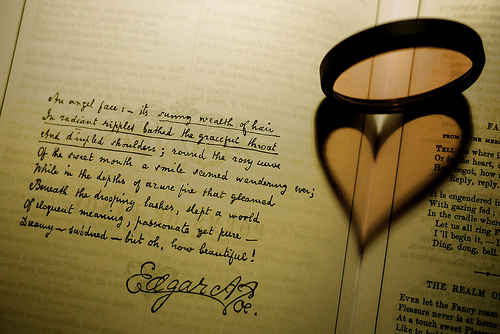 An angel face: – its sunny wealth of hair
In radiant ripples bathed the graceful throat
And dimpled shoulders; round the rosy curve
Of the sweet mouth a smile seemed wandering ever;
While in the depths of azure fire that gleamed
Beneath the drooping lashes, slept a world
Of eloquent meaning, passionate yet pure –
Dreamy – subdued – but oh, how beautiful!
Edgar A.
Poe.
FA
FROM THE MER
TELL where
Or in heart,
how
Reply, reply
is engendered in
With gazing fed
In the cradle where
Let us all ring F
I'll begin it, —
Ding, dong, bell.
THE REALM O
EVER let the Fancy roam
Pleasure never is at home
At a touch sweet Pleas
Like to